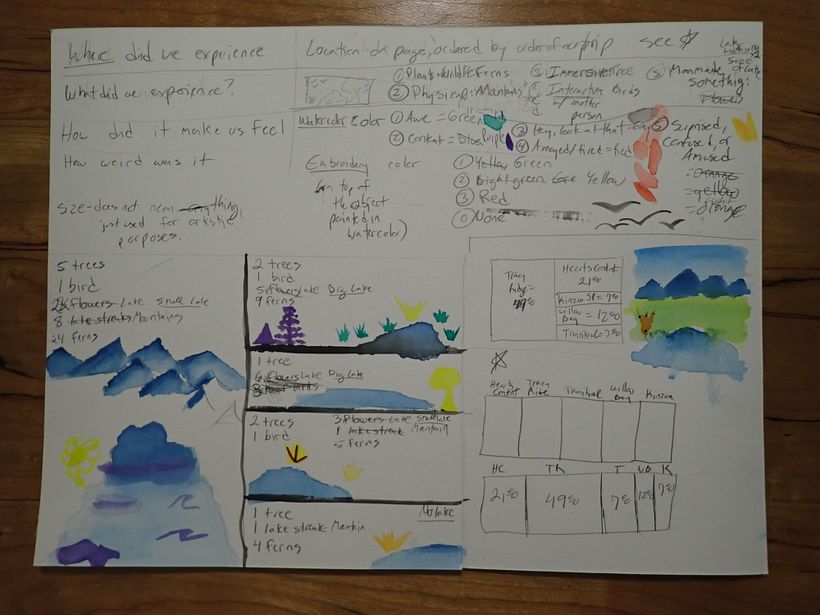 Where did we experience
Location on page, ordered by order of our trip see
What did we experience?
① Plants + Wildlife: Ferns
② Physical: Mountains
④ Immersive: Tree
⑤ Manmade
Something:
Interaction Birds
w/ another
person
How did it make us feel
Watercolor Color
① Awe = Green
② Content = Blue
Purple
③ Hey, look at that =
④ Amazed/tired = Red
⑤ Surprised,
Confused, or
Amused
= orange
= yellow
= orange
How weird was it
Embroidery color
(on top of
the object
painted in
watercolor)
① Yellow Green
② Bright green Yellow
③ Red
⓪ None
Size - does not mean anything,
just used for artistic
purposes.
5 trees
1 bird
Flowers Lake small Lake
8 lake streaks Mountains
24 ferns
2 trees
1 bird
5 Flowers Lake Big Lake
9 ferns
1 tree
Flowers Lake Big Lake
birds
2 trees
1 bird
3 Flowers Lake small Lake
1 lake streak Mountain
5 ferns
1 tree
1 lake streak Mountain
4 ferns
No Lake
Tracy
Ridge =
49%
Hearts Content
21%
Kinzua = 7%
Willow
Bay = 12%
Tranitral = 7%
Hearts
Content
Tracy
Ridge
Tranitral
Willow
Bay
Kinzua
HC TR T WB K
21% 49% 7% 12% 7%